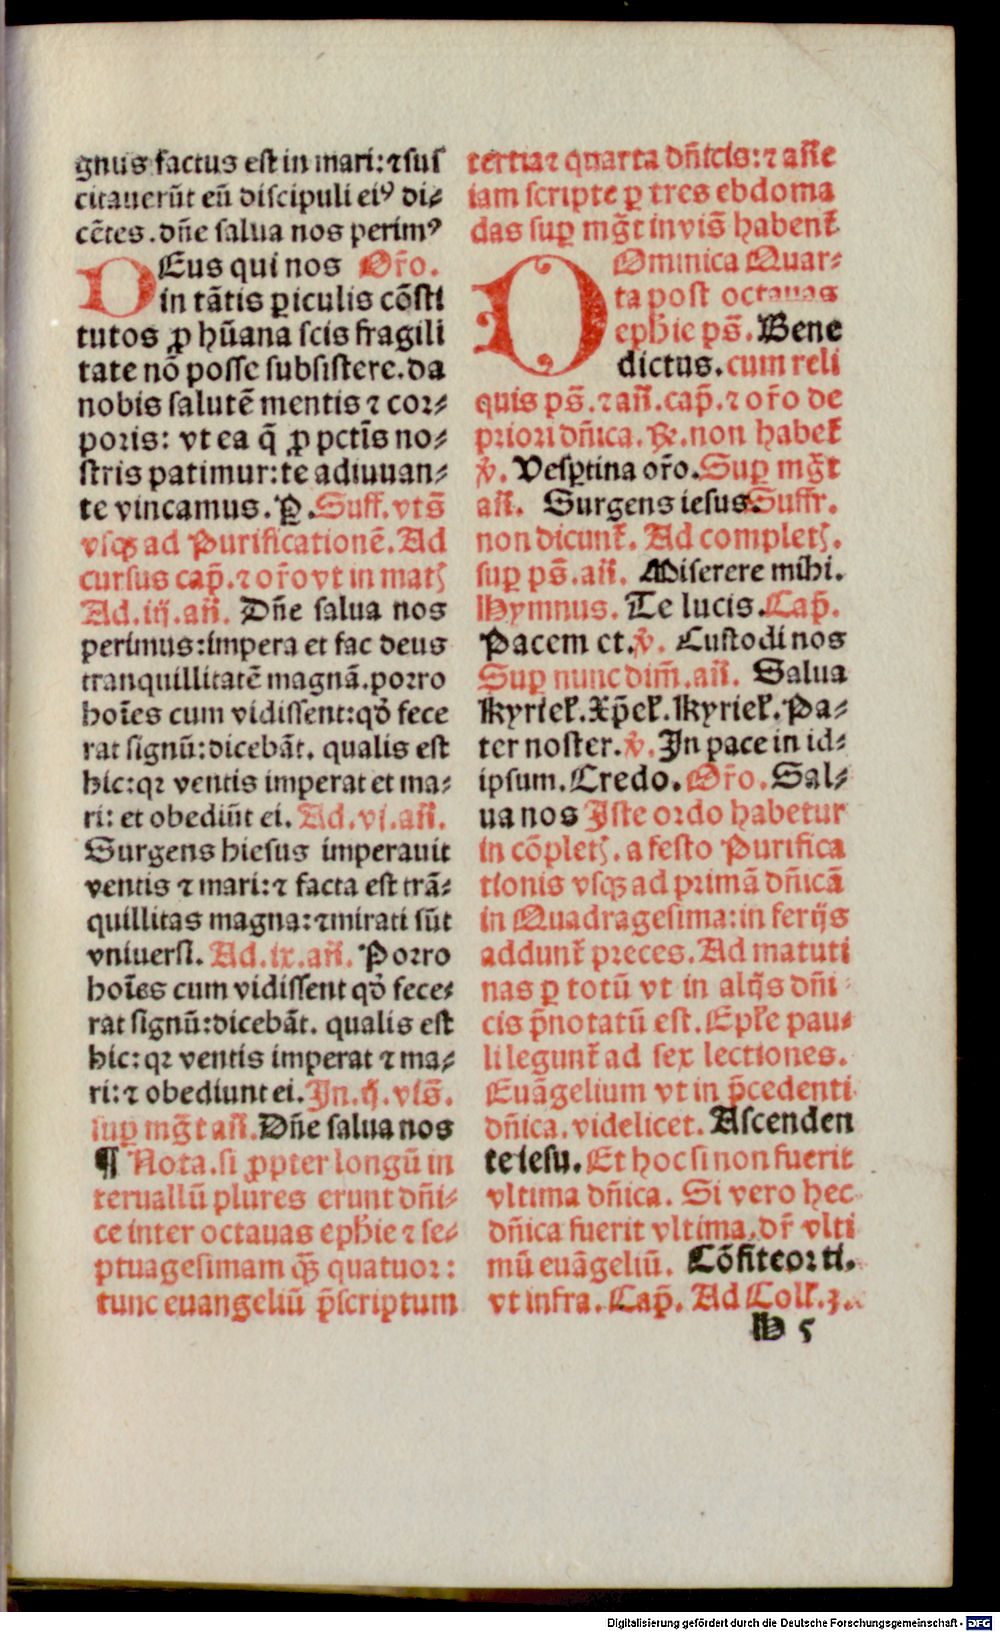 gnus factus est in mari: ⁊ sus
citauerūt eū discipuli eiꝰ di⸗
cētes. dn̄e salua nos perimꝰ
DEus qui nos Or̄o.
in tātis ꝑiculis cōsti
tutos ꝓ hūana scis fragili
tate nō posse subsistere. da
nobis salutē mentis ⁊ cor⸗
poris: vt ea q̄ ꝓ pctīs no⸗
stris patimur: te adiuuan⸗
te vincamus. P̱. Suff. vts̄
vsqꝫ ad Purificationē. Ad
cursus cap̄. ⁊ or̄o vt in matꝭ
Ad. iij. an̄. Dn̄e salua nos
perimus: impera et fac deus
tranquillitatē magnā. porro
hoīes cum vidissent: qd̓ fece
rat signū: dicebāt. qualis est
hic: qꝛ ventis imperat et ma⸗
ri: et obediūt ei. Ad. vi. an̄.
Surgens hiesus imperauit
ventis ⁊ mari: ⁊ facta est trā⸗
quillitas magna: ⁊ mirati sūt
vniuersi. Ad. ix. an̄. Porro
hoīes cum vidissent qd̓ fece⸗
rat signū: dicebāt. qualis est
hic: qꝛ ventis imperat ⁊ ma⸗
ri: ⁊ obediunt ei. In. ij. vis̄.
suꝑ mg̅t an̄. Dn̄e salua nos
¶ Nota. si ꝓpter longū in
teruallū plures erunt dn̄i⸗
ce inter octauas eph̄ie ⁊ se⸗
ptuagesimam qꝫ̄ quatuor:
tunc euangeliū p̄scriptum
tertia ⁊ quarta dn̄icis: ⁊ an̄e
iam scripte ꝑ tres ebdoma
das suꝑ mg̅t in vis̄ habent᷑.
DOminica Quar⸗
ta post octauas
eph̄ie ps̄. Bene
dictus. cum reli
quis ps̄. ⁊ an̄. cap̄. ⁊ or̄o de
priori dn̄ica. ℟. non habet᷑
℣. Vesꝑtina or̄o. Suꝑ mg̅t
an̄. Surgens iesus. Suffr.
non dicunt᷑. Ad completꝭ.
suꝑ ps̄. an̄. Miserere mihi.
Hymnus. Te lucis. Cap̄.
Pacem ct. ℣. Custodi nos
Suꝑ nunc dim̄. an̄. Salua
Kyriel̄. Xp̄el̄. Kyriel̄. Pa⸗
ter noster. ℣. In pace in id⸗
ipsum. Credo. Or̄o. Sal⸗
ua nos Iste ordo habetur
in cōpletꝭ. a festo Purifica
tionis vsqꝫ ad primā dn̄icā
in Quadragesima: in ferijs
addunt᷑ preces. Ad matuti
nas ꝑ totū vt in alijs dn̄i
cis p̄notatū est. Epl̄e pau⸗
li legunt᷑ ad sex lectiones.
Euāgelium vt in p̄cedenti
dn̄ica. videlicet. Ascenden
te iesu. Et hoc si non fuerit
vltima dn̄ica. Si vero hec
dn̄ica fuerit vltima. dr̄ vlti
mū euāgeliū. Cōfiteor ti.
vt infra. Cap̄. Ad Coll̄. 3.
H 5
Digitalisierung gefördert durch die Deutsche Forschungsgemeinschaft - DFG